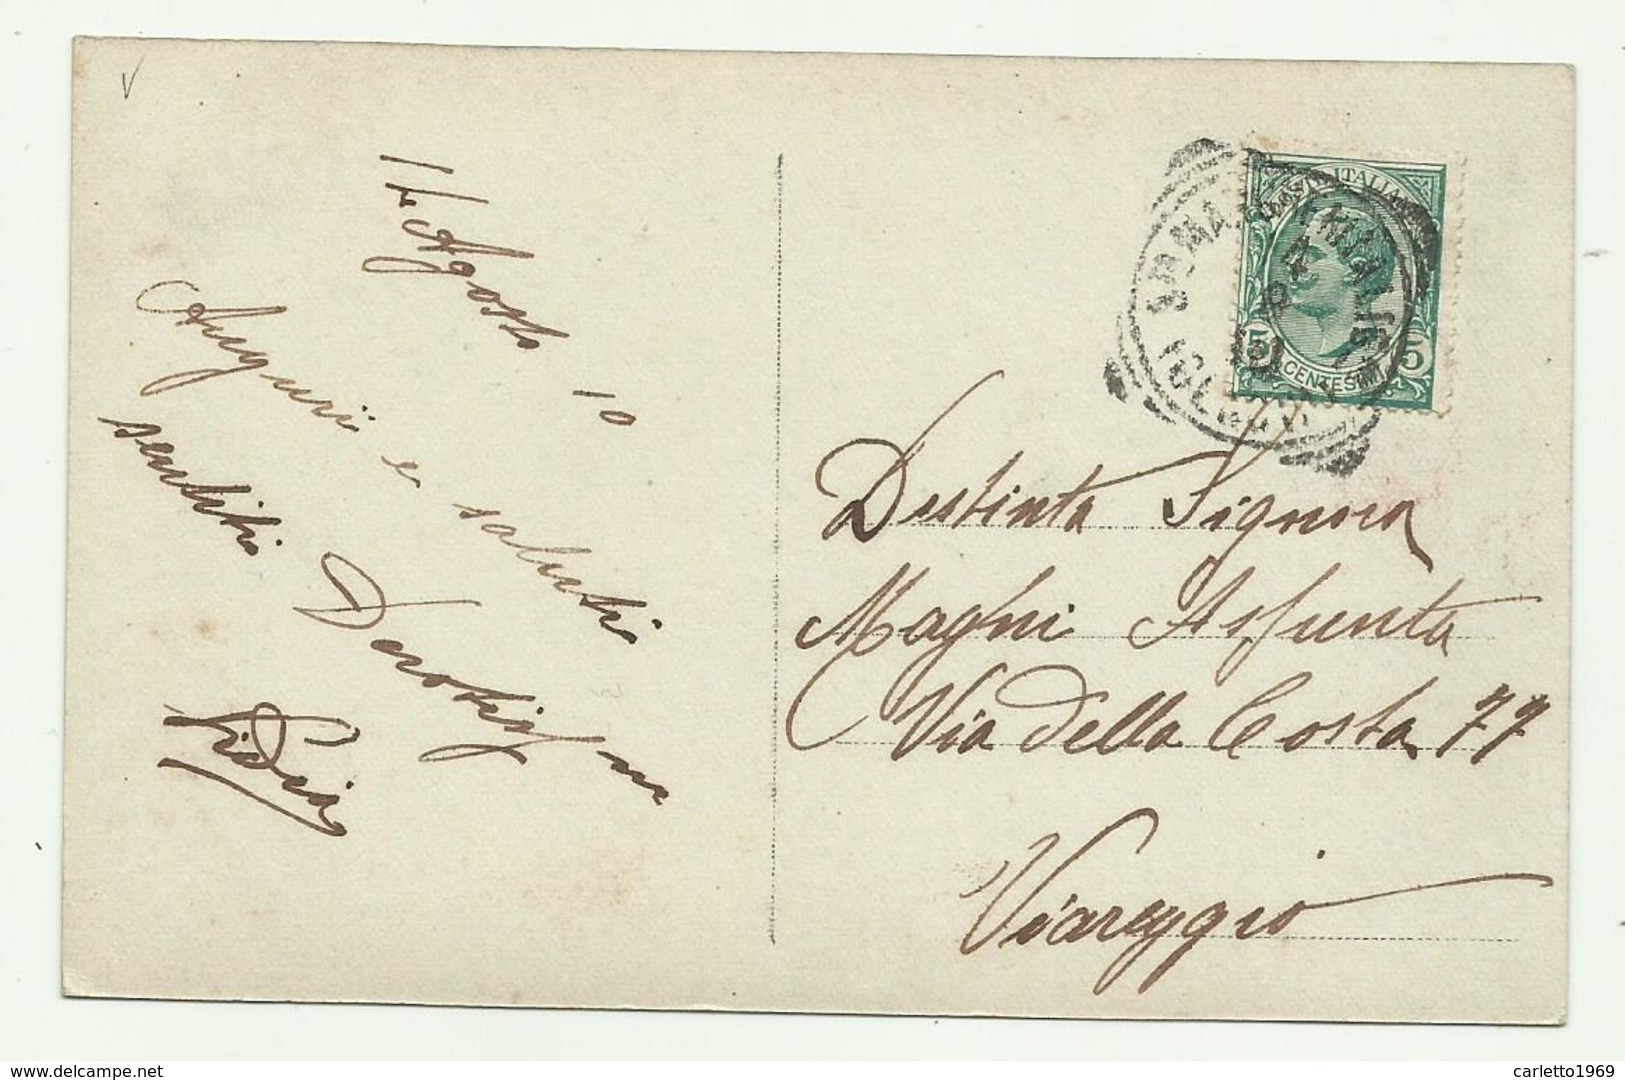 14 Agosto 10
Auguri e saluti
sentiti Devotissma
Lidia
POSTE ITALIANE
5 CENTESIMI 5
Distinta Signora
Magni Assunta
Via della Costa 77
Viareggio
delcampe.net
carletto1969